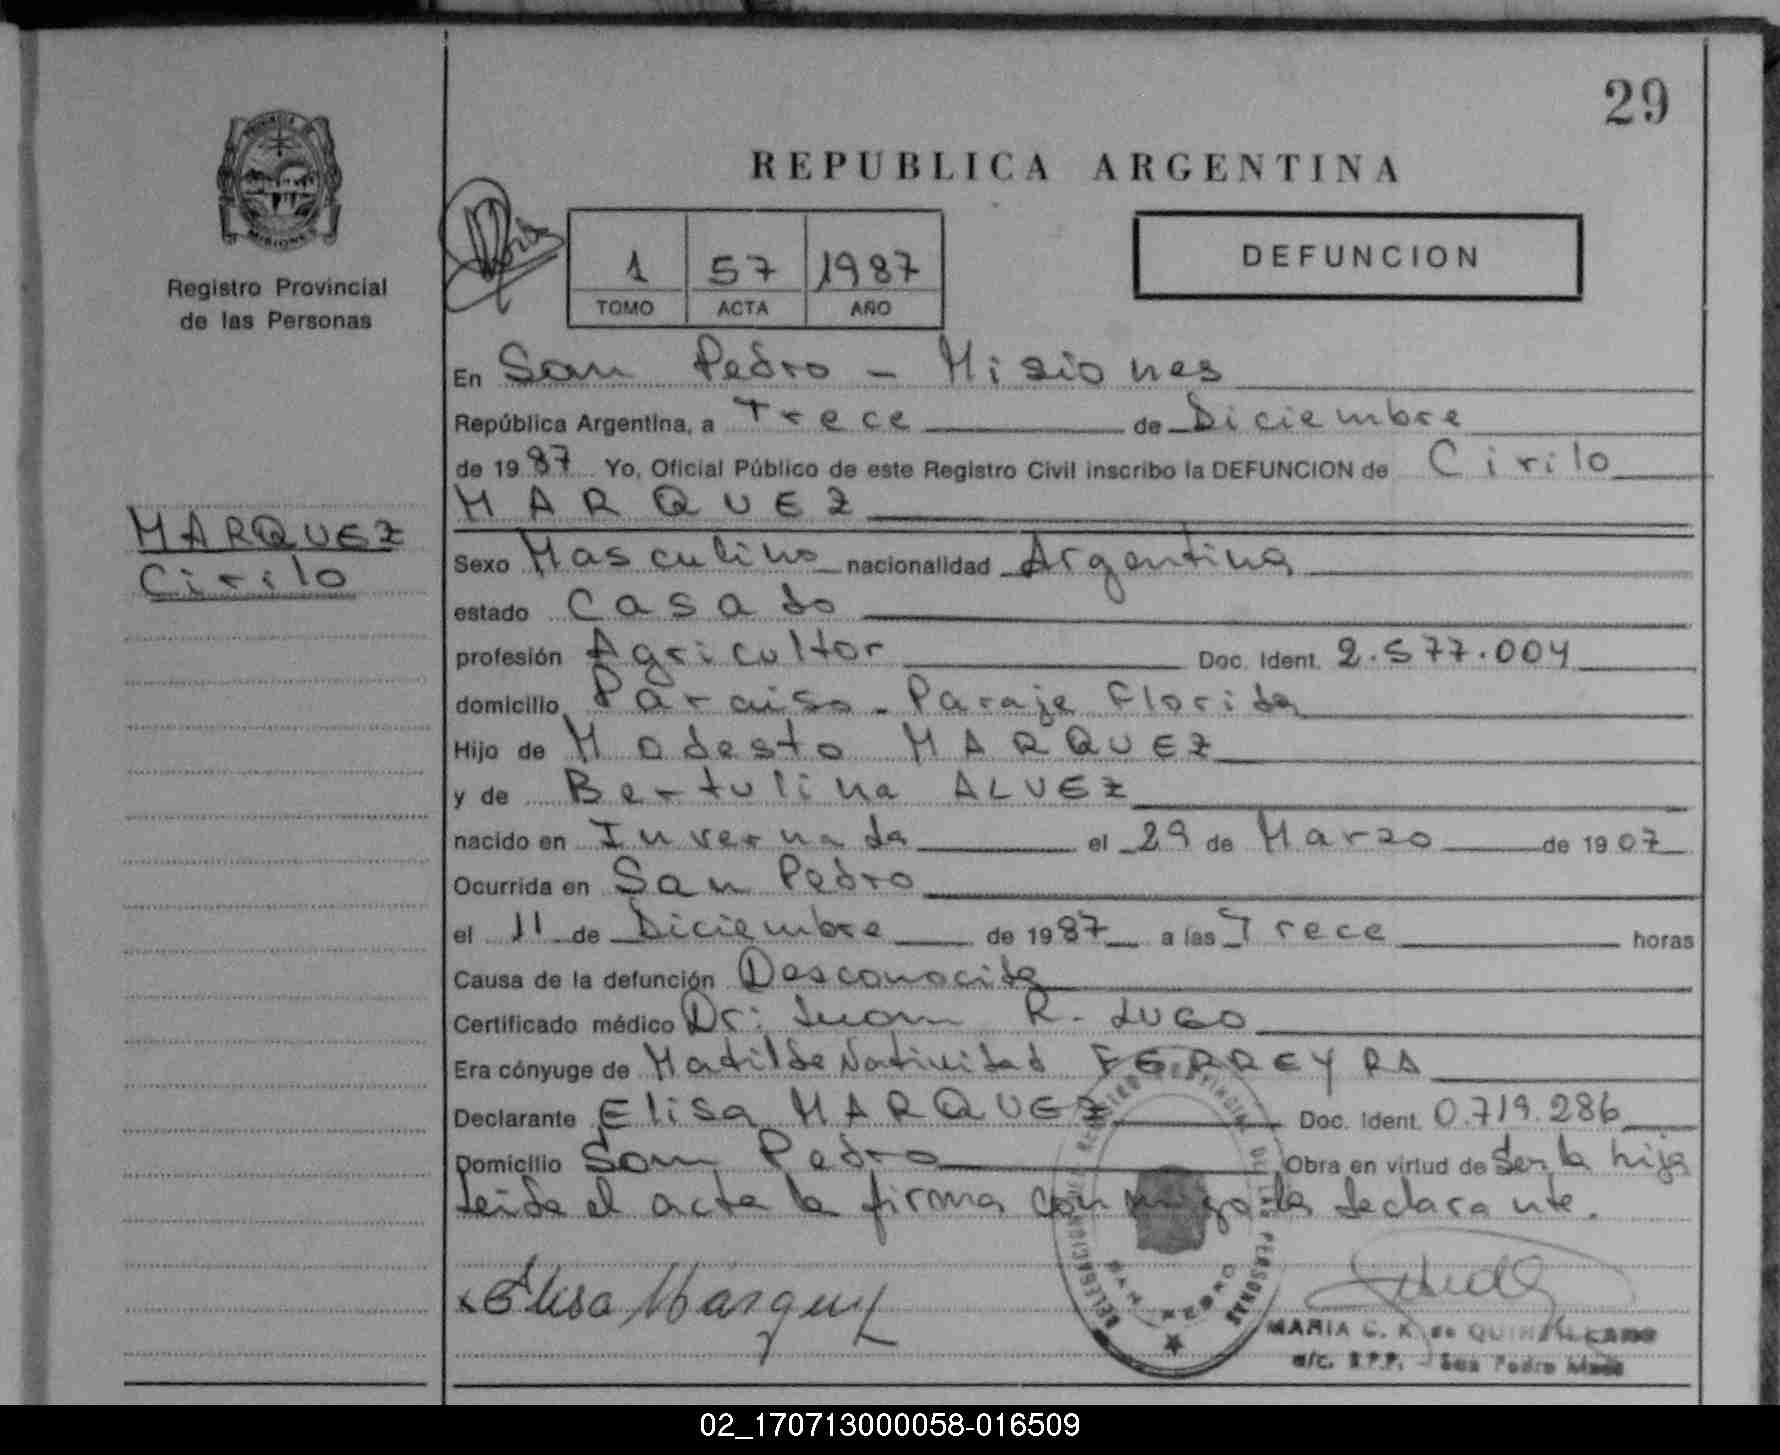 29
PROVINCIA DE
MISIONES
Registro Provincial
de las Personas
REPUBLICA ARGENTINA
1 57 1987
TOMO ACTA AÑO
DEFUNCION
MARQUEZ
Cirilo
En San Pedro - Misiones
República Argentina, a Trece de Diciembre
de 1987 Yo, Oficial Público de este Registro Civil inscribo la DEFUNCION de Cirilo
MARQUEZ
Sexo Masculino nacionalidad Argentina
estado Casado
profesión Agricultor Doc. Ident. 2.577.004
domicilio Paraiso - Paraje Florida
Hijo de Modesto MARQUEZ
y de Bertulina ALVEZ
nacido en Invernada el 29 de Marzo de 1907
Ocurrida en San Pedro
el 11 de Diciembre de 1987 a las Trece horas
Causa de la defunción Desconocida
Certificado médico Dr: Juan R. LUGO
Era cónyuge de Matilde Natividad FERREYRA
Declarante Elisa MARQUEZ Doc. Ident. 0.719.286
Domicilio San Pedro Obra en virtud de Ser la hija
Leida el acta la firma conmigo la declarante.
x Elisa Marquez
DELEGACION REGISTRO PROVINCIAL DE LAS PERSONAS
SAN PEDRO
MARIA C. K. de
a/c. R.P.P. - San Pedro Mnes
02_170713000058-016509